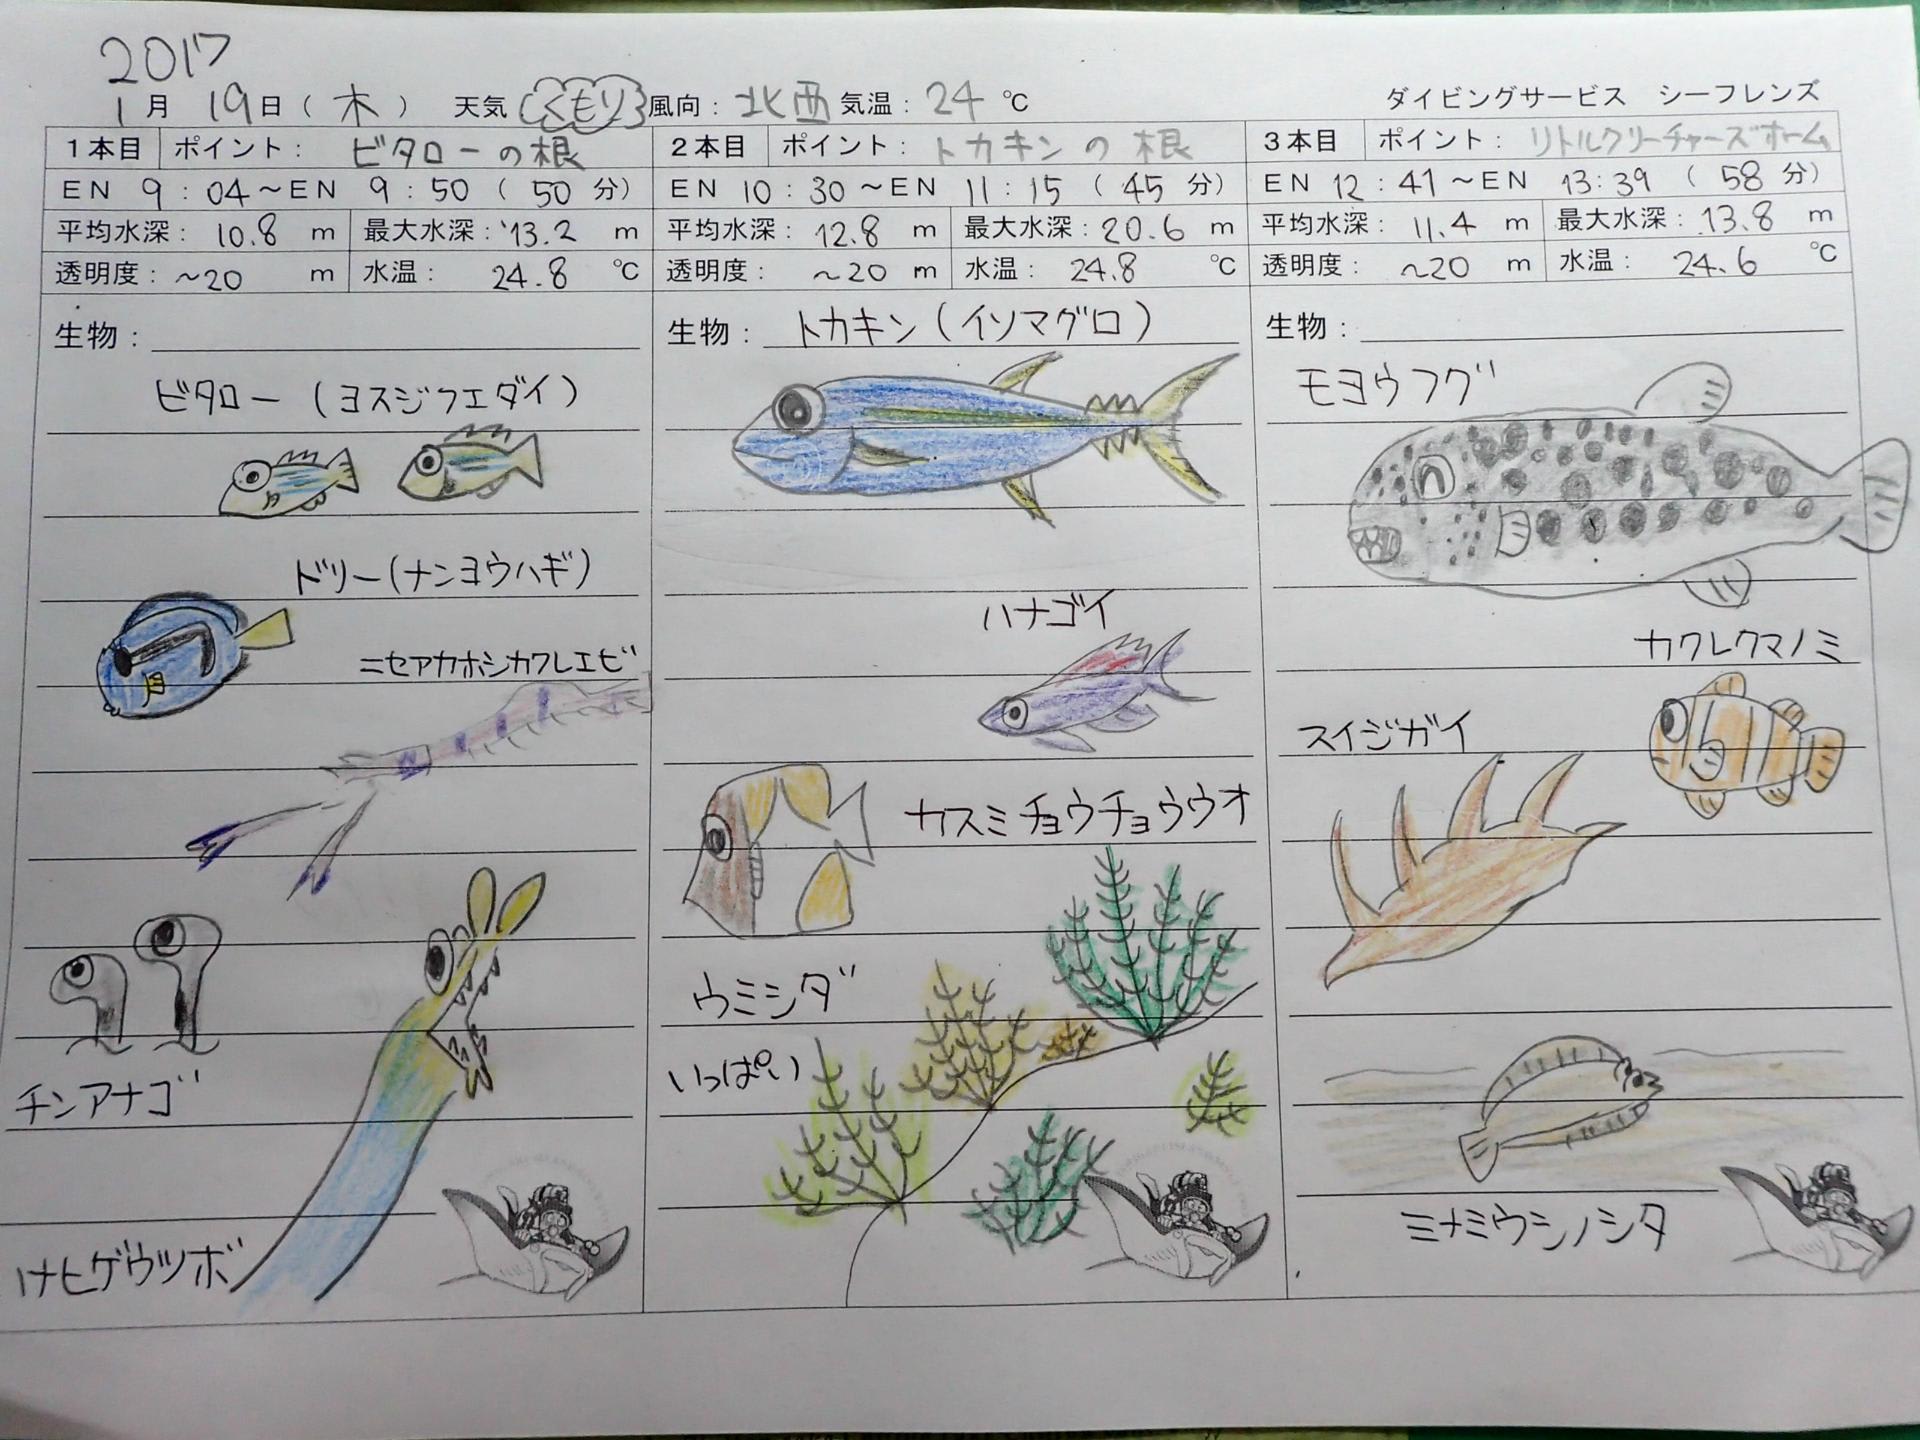 2017
1月 19日(木) 天気(くもり)風向:北西 気温:24℃
ダイビングサービス シーフレンズ
1本目 ポイント: ビタローの根
EN 9:04～EN 9:50(50分)
平均水深:10.8m 最大水深:13.2m
透明度:~20m 水温:24.8℃
生物:
ビタロー(ヨスジフエダイ)
ドリー(ナンヨウハギ)
ニセアカホシカクレエビ
チンアナゴ
ハナヒゲウツボ
2本目 ポイント: トカキンの根
EN 10:30～EN 11:15(45分)
平均水深:12.8m 最大水深:20.6m
透明度:~20m 水温:24.8℃
生物:トカキン(イソマグロ)
ハナゴイ
カスミチョウチョウウオ
ウミシダ
いっぱい
3本目 ポイント: リトルクリーチャーズホーム
EN 12:41～EN 13:39(58分)
平均水深:11.4m 最大水深:13.8m
透明度:~20m 水温:24.6℃
生物:
モヨウフグ
カクレクマノミ
スイジガイ
ミナミウシノシタ